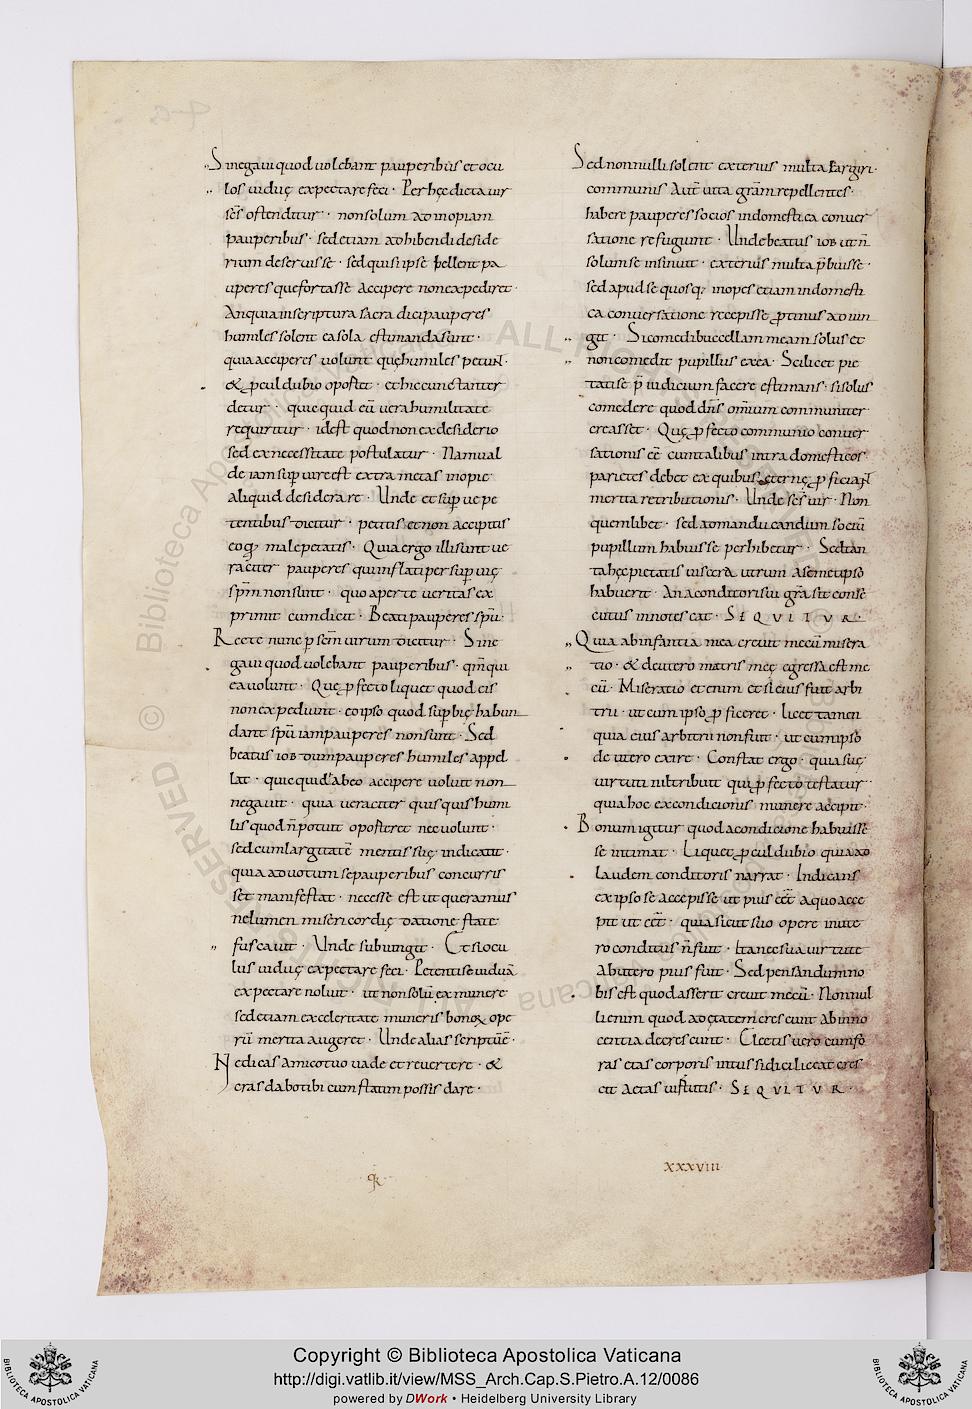 Si negaui quod uolebant pauperibus et ocu
los uiduę expectare feci · Per hęc dicta uir
scs̄ ostenditur · non solum ad inopiam
pauperibus · sed etiam ad hibendi deside
rium deseruisse · sed quis ipse uellent pa
uperes que fortasse accipere non expediret ·
An quia in scriptura sacra dici pauperes
humiles solent ea sola estimanda sunt ·
quia accipere uolunt quę humiles petunt ·
& ꝓcul dubio oportet · et hic cunctanter
detur · quicquid cū uera humilitate
requiritur · id est quod non ex desiderio
sed ex necessitate postulatur · Nam ual
de iam suꝑuire est extra metas inopię
aliquid desiderare · Unde et suꝑue pe
tentibus dicitur · petitis et non accipitis
eo qđ male petatis · Quia ergo illi sunt ue
raciter pauperes qui inflati per suꝑuię
spm̄ non sunt · quod aperte ueritas ex
primit cum dicit · Beati pauperes spū ·
Recte nunc ꝑ scm̄ uirum dicitur · Si ne
gaui quod uolebant pauperibus · qm̄ qui
ea uolunt · Quę ꝓfecto liquet quod eis
non expediunt · eo ipso quod suꝑbię habun
dant spū iam pauperes non sunt · Sed
beatus iob dum pauperes humiles appel
lat · quicquid ab eo accipere uoluit non
negauit · quia ueraciter quisquis humi
lis quod n̄ potuit oporteret nec uolunt ·
sed cum largitatē mentis suę indicauit ·
quia ad uotum se pauperibus concurris
set manifestat · necesse est ut queramus
ne lumen misericordię dationę starte
fuscauit · Unde subiungit · Et si ocu
los uiduę expectare feci · Petentis e uiduā
expectare noluit · ut non solū ex munere
sed etiam ex celeritate muneris bonoꝝ ope
rū merita augeret · Unde alias scriptū ē ·
Ne dicas amico tuo uade et reuertere · &
cras dabo tibi cum statim possis dare ·
Sed nonnulli solent exterius multa largiri ·
communis aut̄ uita grā m repellentes ·
habere pauperes socios in domestica conuer
satione refugiunt · Unde beatus iob ut n̄
solum se insinuit · exterius multa p̄buisse ·
sed apud se quosq; inopes etiam in domesti
ca conuersatione recepisse ꝓtinus adiun
git · Si comedi buccellam meam solus et
non comedit pupillus ex ea · Scilicet pie
tatis e p̄iudicium facere estimans · si solus
comederet quod dns̄ omium communiter
creasset · Quę ꝓfecto communio conuer
sationis eē cum talibus intra domesticos
parietes debet ex quibus ęternę ꝓficiant
merita retributionis · Unde scs̄ uir · Non
quemlibet · sed ad manducandum sociū
pupillum habuisse perhibetur · Sed tan
ta hęc pietatis uiscera utrum a semetipso
habuerit · An a conditoris ui gr̄a sit conse
cutus innotescat · SEQVITVR ·
Quia ab infantia mea creuit mecū misera
tio · & de utero matris meę egressa est me
cū · Miseratio etenim et si eius fuit arbi
trii · ut cum ipso ꝓficeret · licet tamen
quia eius arbitrii non fuit · ut cum ipso
de utero exire · Constat ergo · quia suę
uirtuti nil tribuit qui ꝓfecto testatur
quia hoc ex condicionis munere accipit ·
Bonum igitur quod a condicione habuisse
se intimat · Liquet ꝓcul dubio quia ad
laudem conditoris narrat · Indicans
ex ipso se accepisse ut pius eēt a quo acce
pit ut eēt · quia sicut suo opere in ute
ro conditus n̄ fuit · Ita nec sua uirtute
ab utero pius fuit · Sed pensandum no
bis est quod asserit creuit mecū · Nonnul
li enim quod ad ętatem crescunt ab inno
centia decrescunt · Electis uero cum fo
ras etas corporis intus si dici liceat cres
cit aetas uirtutis · SEQVITVR ·
XXXVIII
Copyright © Biblioteca Apostolica Vaticana
http://digi.vatlib.it/view/MSS_Arch.Cap.S.Pietro.A.12/0086
powered by DWork • Heidelberg University Library